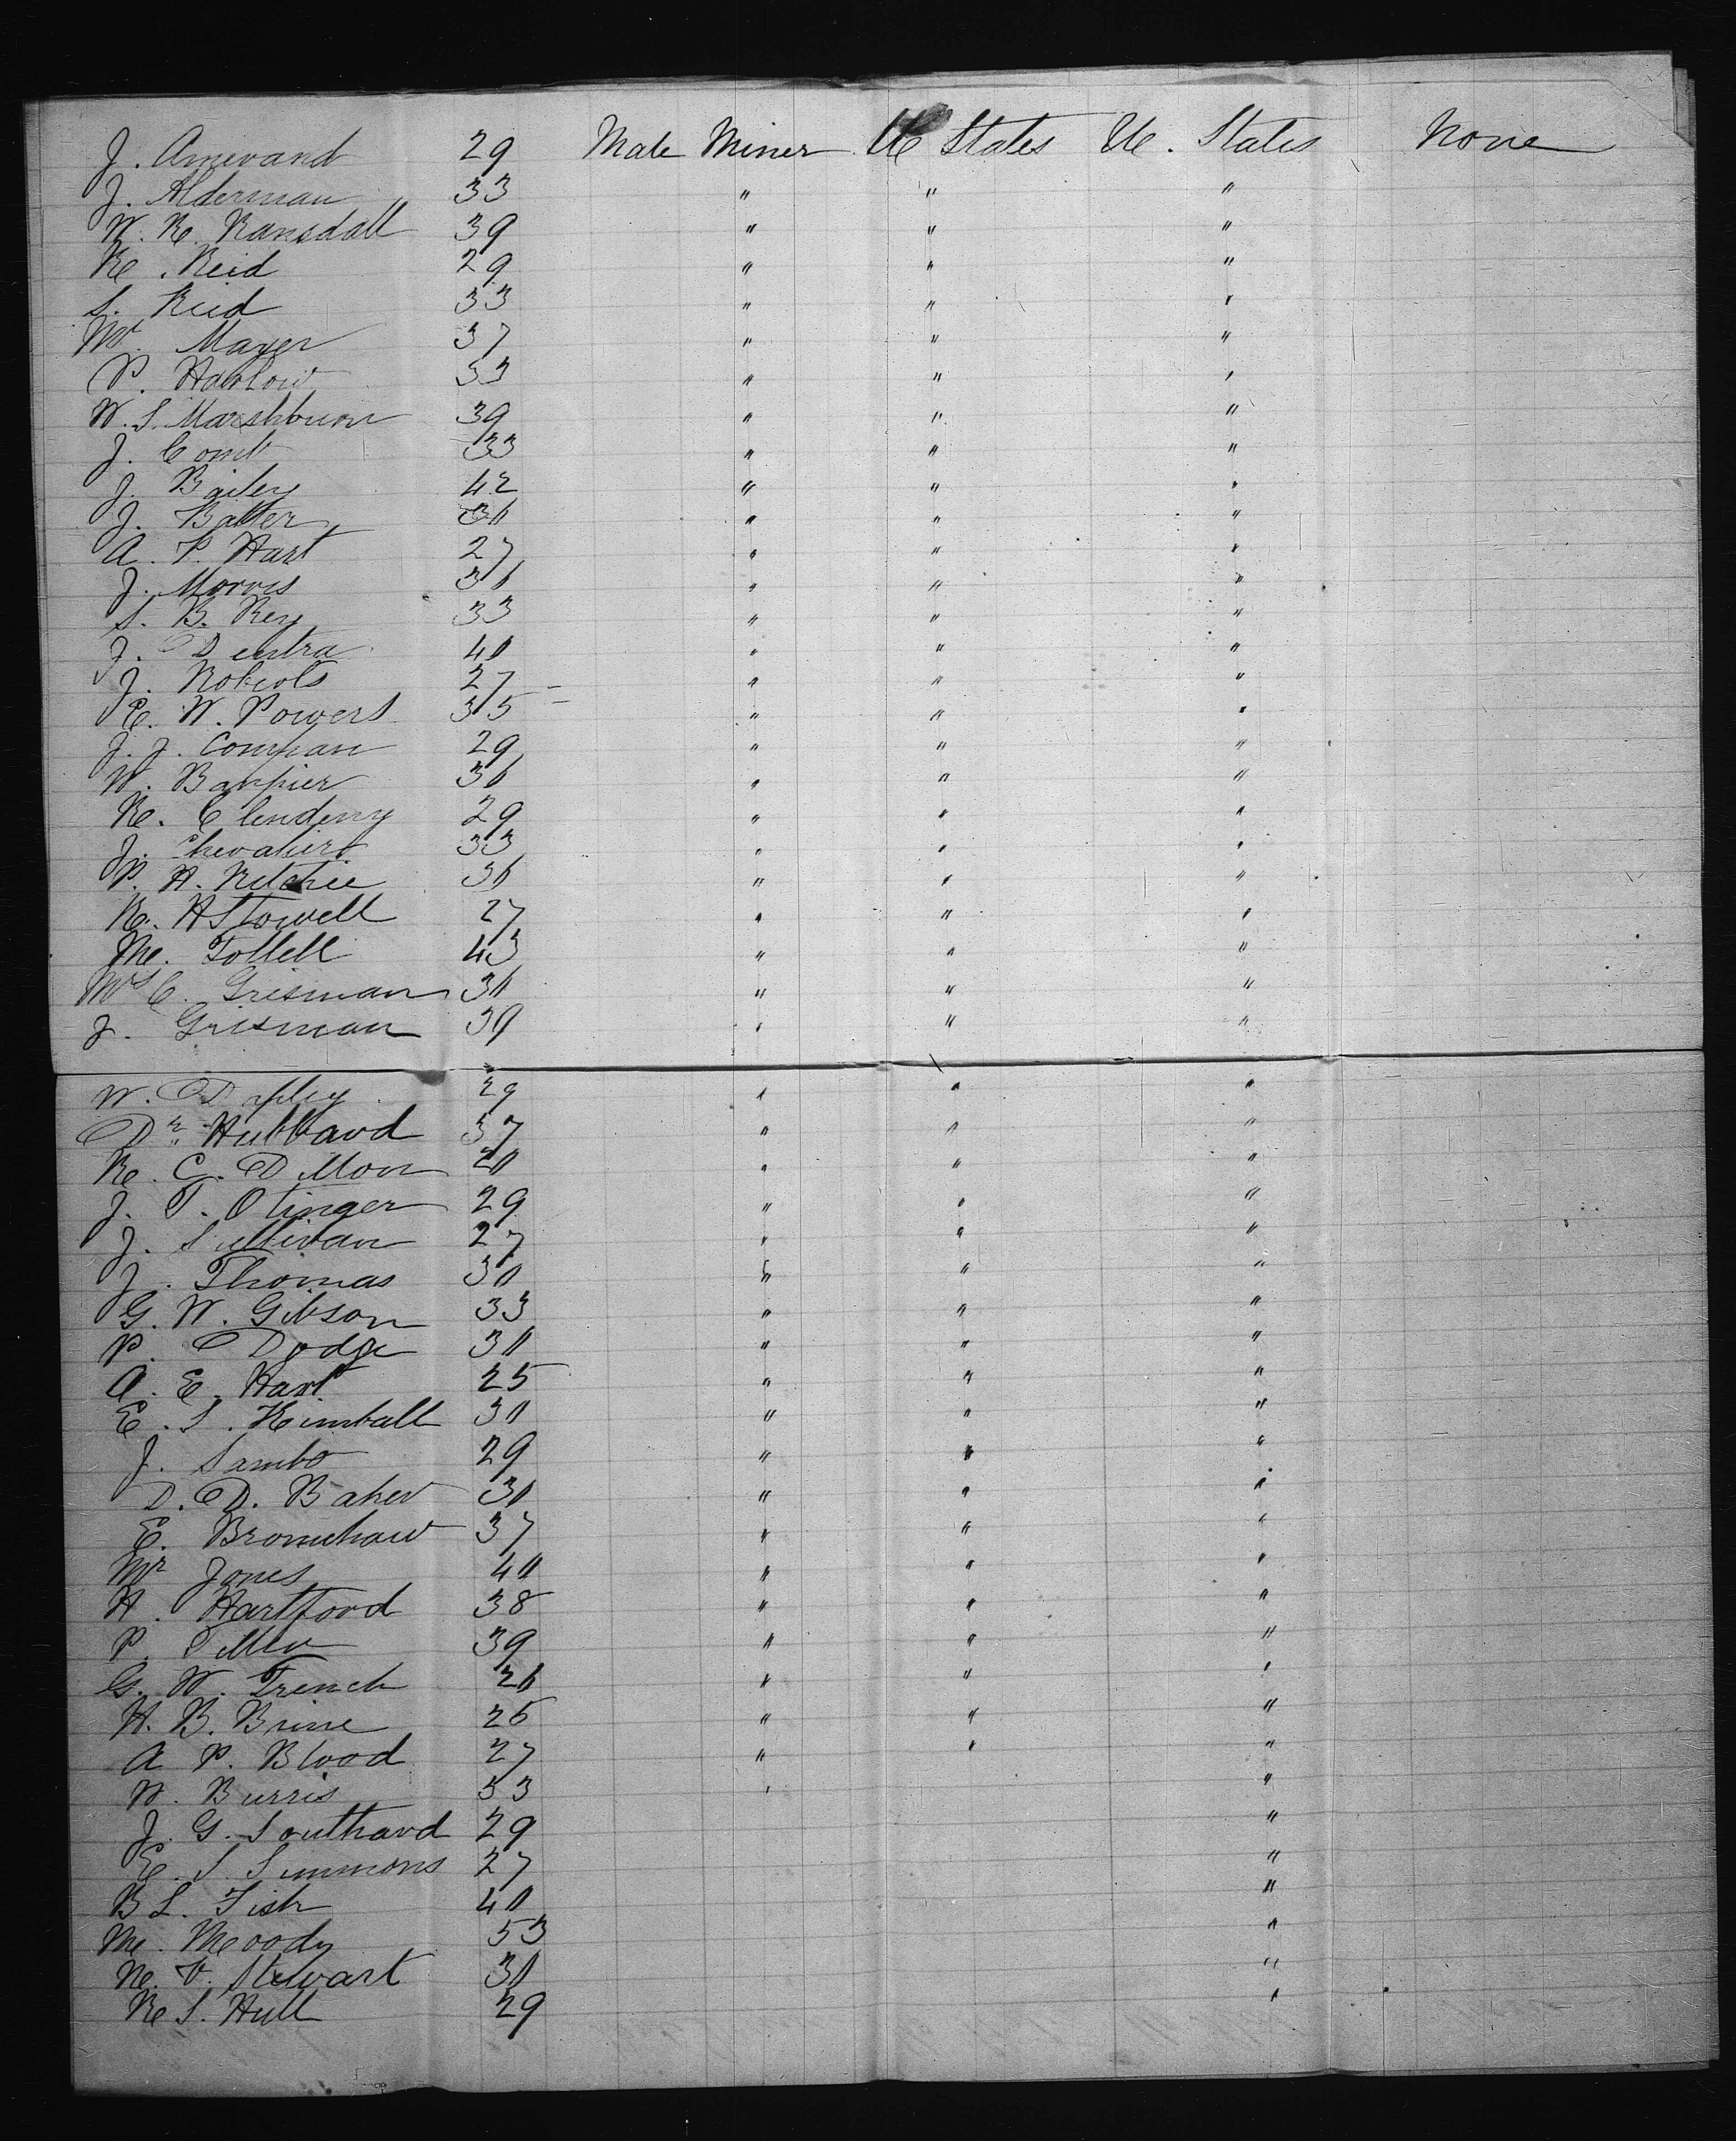 J. Amerand 29 Male Miner U States U. States None
J. Alderman 33 " " "
W. R. Ransdall 39 " " "
R. Reid 29 " " "
S. Reid 33 " " "
Mr. Mayer 37 " " "
P. Harlow 33 " " "
W. S. Marshburn 39 " " "
J. Comb 33 " " "
J. Bailey 42 " " "
J. Batter 31 " " "
A. P. Hart 27 " " "
J. Morris 36 " " "
S. B. Rey 33 " " "
J. Dentra 40 " " "
J. Roberts 27 " " "
E. W. Powers 35 " " "
J. J. Compan 29 " " "
W. Banpier 36 " " "
R. Clendeny 29 " " "
J. Chevalier 33 " " "
P. H. Ritchie 36 " " "
R. H Stowell 27 " " "
M. Tollell 43 " " "
Mrs C. Grisman 30 " " "
J. Grisman 39 " " "
W. Dapley 29 " " "
Dr. Hubbard 37 " " "
R. C. Dillon 20 " " "
J. T. Otinger 29 " " "
J. Sullivan 27 " " "
J. Thomas 30 " " "
G. W. Gibson 33 " " "
P. Dodge 30 " " "
A. E. Hart 25 " " "
E. S. Kimball 30 " " "
J. Sambo 29 " " "
D. D. Baker 30 " " "
E. Bromshaw 37 " " "
Mr Jones 40 " " "
H. Hartford 38 " " "
P. Tiller 39 " " "
G. W. French 26 " " "
H. B. Brine 26 " " "
A P. Blood 27 " " "
W. Burris 33 " "
J. G. Southard 29 "
E. S. Simmons 27 "
B L. Fish 40 "
M. Moody 53 "
N. V. Stewart 30 "
R S. Hull 29 "